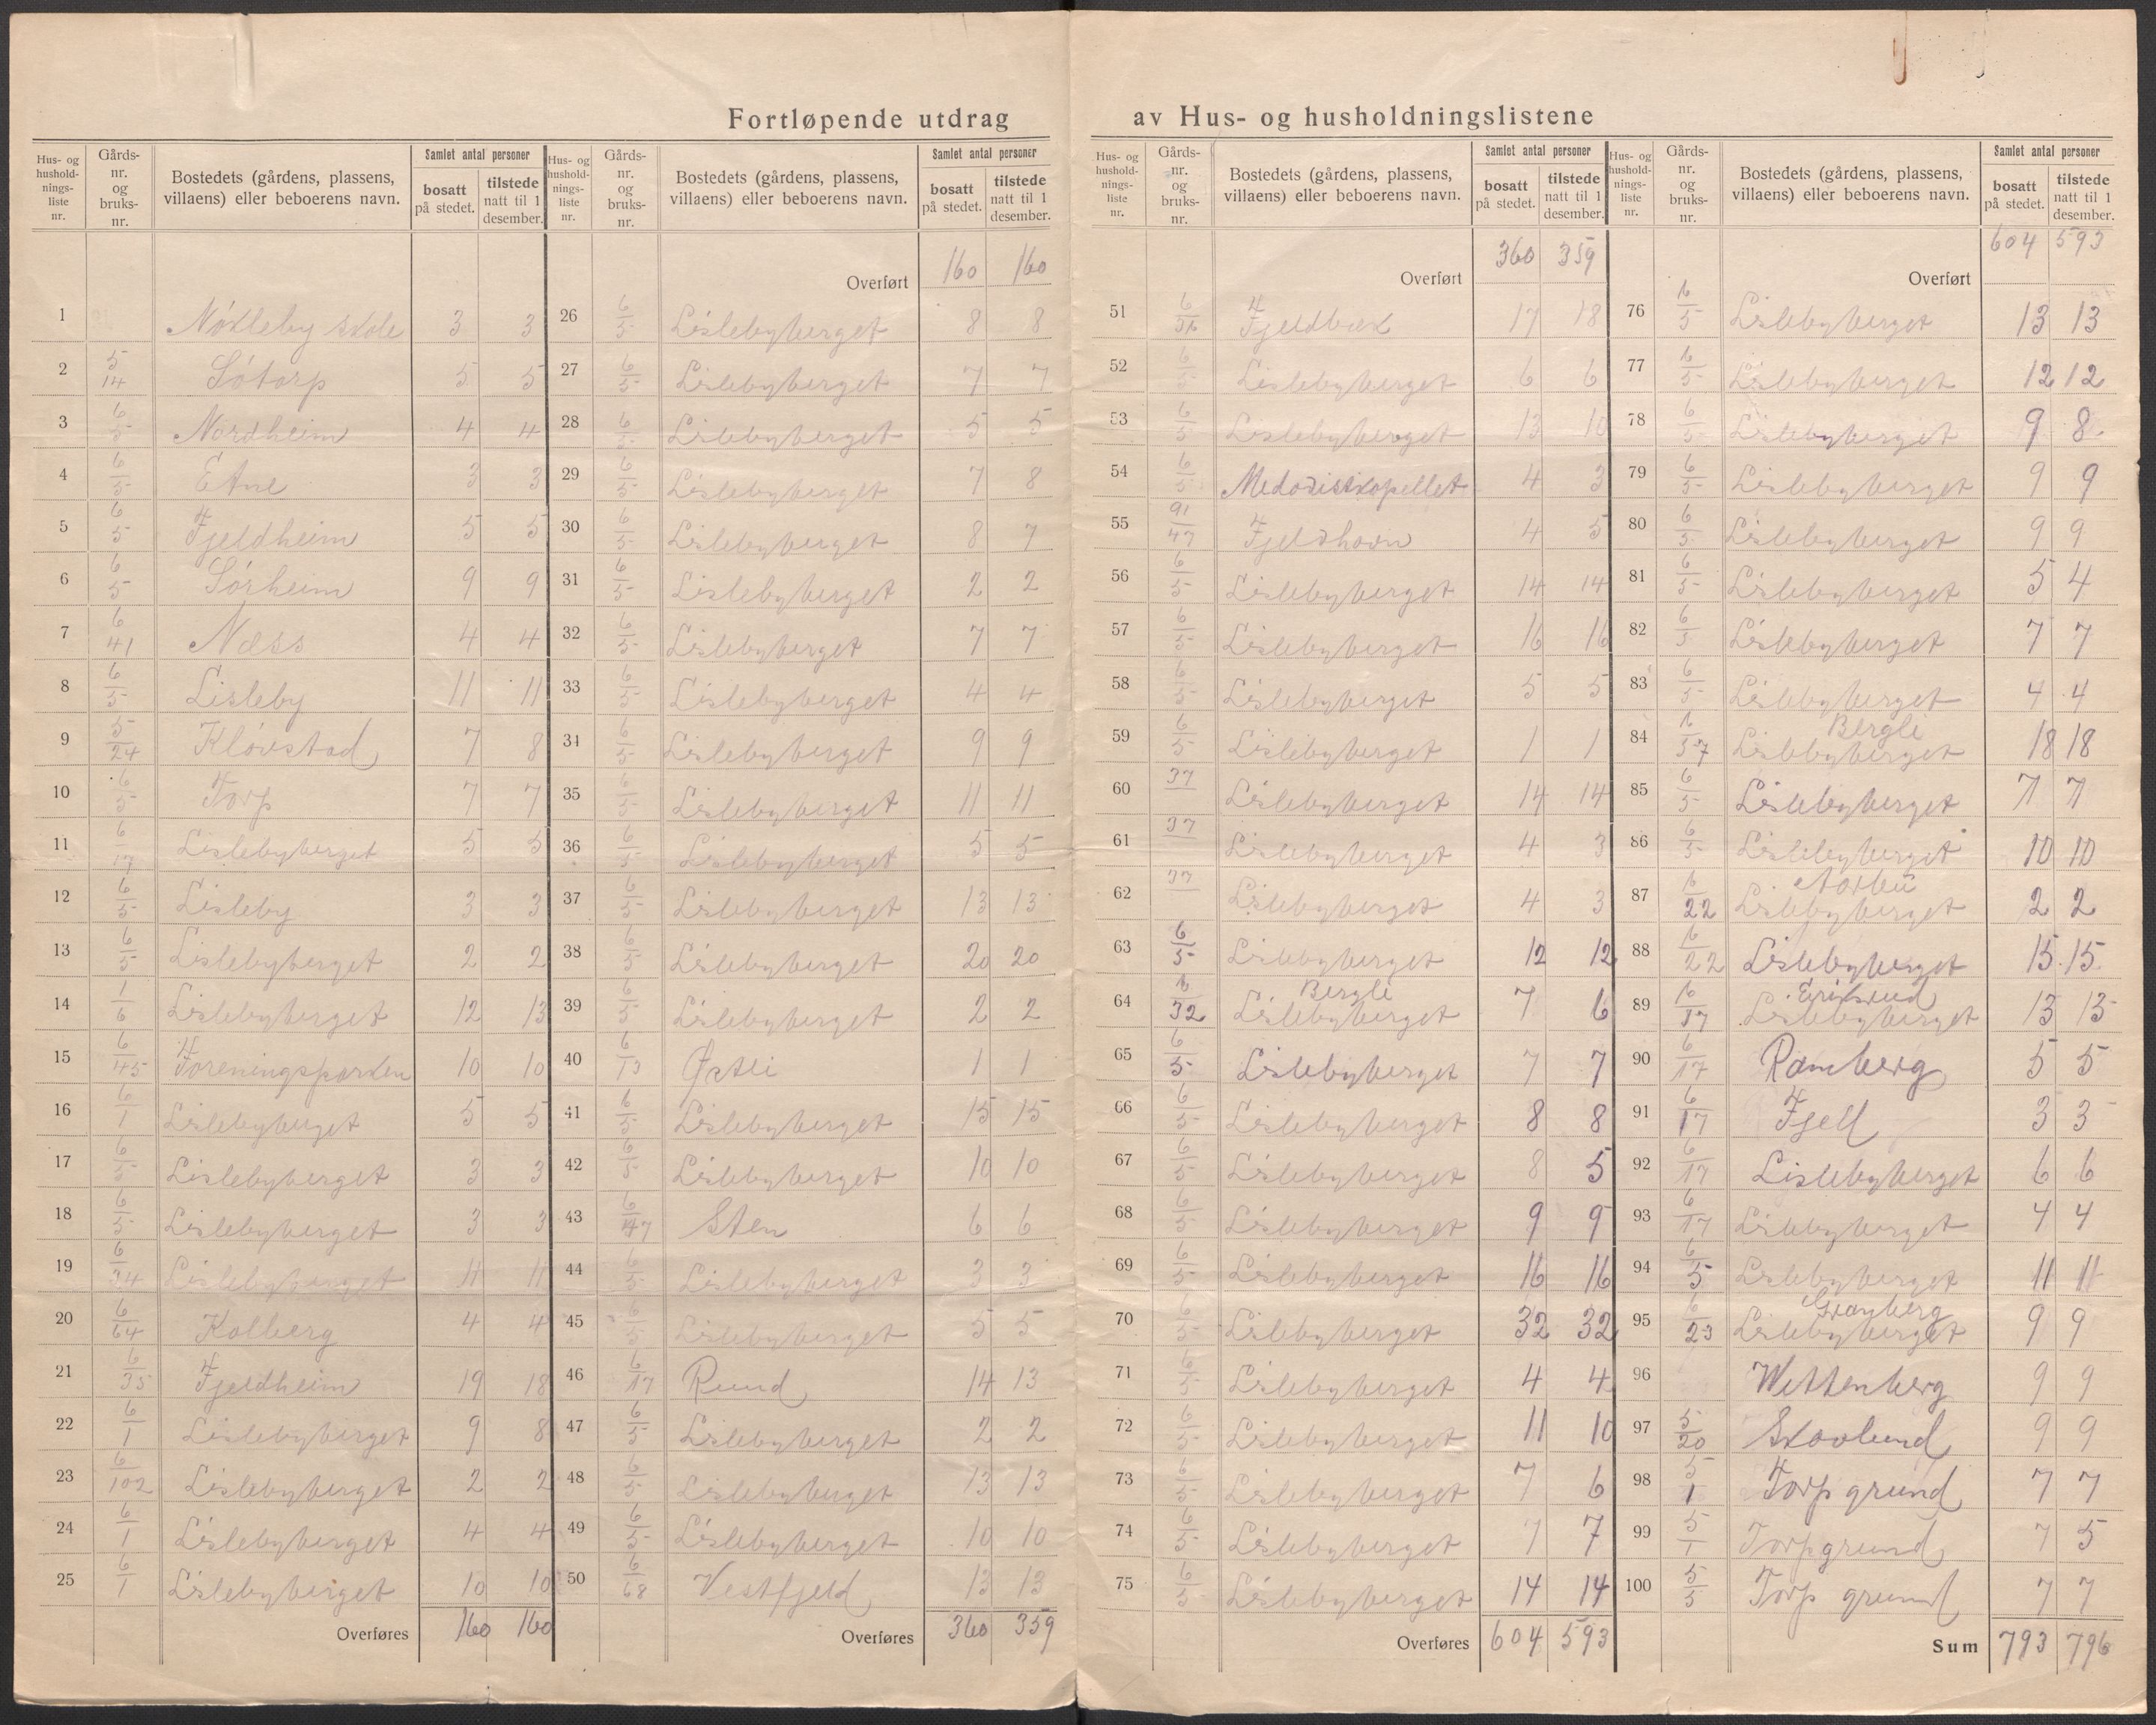 Fortløpende utdrag av Hus- og husholdningslistene
Hus- og hushold-nings-liste nr. | Gårds-nr. og bruks-nr. | Bostedets (gårdens, plassens, villaens) eller beboerens navn. | Samlet antal personer | bosatt på stedet. | tilstede natt til 1 desember.
1 Nøkleby skole 3 3
2 5/14 Søtorp 5 5
3 6/5 Nordheim 4 4
4 6/5 Etne 3 3
5 6/5 Fjeldheim 5 5
6 6/5 Sørheim 9 9
7 6/41 Næss 4 4
8 6/5 Lisleby 11 11
9 5/24 Kløvstad 7 8
10 6/5 Torp 7 7
11 6/17 Lislebyberget 5 5
12 6/5 Lisleby 3 3
13 6/5 Lislebyberget 2 2
14 1/6 Lislebyberget 12 13
15 6/45 Foreningsparken 10 10
16 6/1 Lislebyberget 5 5
17 6/5 Lislebyberget 3 3
18 6/5 Lislebyberget 3 3
19 6/34 Lislebyberget 11 11
20 6/64 Kolberg 4 4
21 6/35 Fjeldheim 19 18
22 6/1 Lislebyberget 9 8
23 6/102 Lislebyberget 2 2
24 6/1 Lislebyberget 4 4
25 6/1 Lislebyberget 10 10
Overføres 160 160
Hus- og hushold-nings-liste nr. | Gårds-nr. og bruks-nr. | Bostedets (gårdens, plassens, villaens) eller beboerens navn. | Samlet antal personer | bosatt på stedet. | tilstede natt til 1 desember.
Overført 160 160
26 6/5 Lislebyberget 8 8
27 6/5 Lislebyberget 7 7
28 6/5 Lislebyberget 5 5
29 6/5 Lislebyberget 7 8
30 6/5 Lislebyberget 8 7
31 6/5 Lislebyberget 2 2
32 6/5 Lislebyberget 7 7
33 6/5 Lislebyberget 4 4
34 6/5 Lislebyberget 9 9
35 6/5 Lislebyberget 11 11
36 6/5 Lislebyberget 5 5
37 6/5 Lislebyberget 13 13
38 6/5 Lislebyberget 20 20
39 6/5 Lislebyberget 2 2
40 6/13 Østli 1 1
41 6/5 Lislebyberget 15 15
42 6/5 Lislebyberget 10 10
43 6/47 Sten 6 6
44 6/5 Lislebyberget 3 3
45 6/5 Lislebyberget 5 5
46 6/17 Ruud 14 13
47 6/5 Lislebyberget 2 2
48 6/5 Lislebyberget 13 13
49 6/5 Lislebyberget 10 10
50 6/68 Vestfjeld 13 13
Overføres 360 359
Hus- og hushold-nings-liste nr. | Gårds-nr. og bruks-nr. | Bostedets (gårdens, plassens, villaens) eller beboerens navn. | Samlet antal personer | bosatt på stedet. | tilstede natt til 1 desember.
Overført 360 359
51 Fjeldbæk 17 18
52 6/5 Lislebyberget 6 6
53 6/5 Lislebyberget 13 10
54 6/5 Medodistkapellet 4 3
55 91/47 Fjeldhavn 4 5
56 6/5 Lislebyberget 14 14
57 6/5 Lislebyberget 16 16
58 6/5 Lislebyberget 5 5
59 6/5 Lislebyberget 1 1
60 37 Lislebyberget 14 14
61 37 Lislebyberget 4 3
62 37 Lislebyberget 4 3
63 6/5 Lislebyberget 12 12
64 6/32 Bergli Lislebyberget 7 6
65 6/5 Lislebyberget 7 7
66 6/5 Lislebyberget 8 8
67 6/5 Lislebyberget 8 5
68 6/5 Lislebyberget 9 9
69 6/5 Lislebyberget 16 16
70 6/5 Lislebyberget 32 32
71 6/5 Lislebyberget 4 4
72 6/5 Lislebyberget 11 10
73 6/5 Lislebyberget 7 6
74 6/5 Lislebyberget 7 7
75 6/5 Lislebyberget 14 14
Overføres 604 593
Hus- og hushold-nings-liste nr. | Gårds-nr. og bruks-nr. | Bostedets (gårdens, plassens, villaens) eller beboerens navn. | Samlet antal personer | bosatt på stedet. | tilstede natt til 1 desember.
Overført 604 593
76 6/5 Lislebyberget 13 13
77 6/5 Lislebyberget 12 12
78 6/5 Lislebyberget 9 8
79 6/5 Lislebyberget 9 9
80 6/5 Lislebyberget 9 9
81 6/5 Lislebyberget 5 4
82 6/5 Lislebyberget 7 7
83 6/5 Lislebyberget 4 4
84 6/37 Bergli Lislebyberget 18 18
85 6/5 Lislebyberget 7 7
86 6/5 Lislebyberget 10 10
87 6/22 Lislebyberget 2 2
88 6/22 Lislebyberget 15 15
89 6/17 Lislebyberget 13 13
90 6/17 Ramberg 5 5
91 6/17 Fjell 3 3
92 6/17 Lislebyberget 6 6
93 6/17 Lislebyberget 4 4
94 6/5 Lislebyberget 11 11
95 6/23 Granberg Lislebyberget 9 9
96 Wettenberg 9 9
97 5/20 Skovlund 9 9
98 5/1 Torp grund 7 7
99 5/1 Torpgrund 7 5
100 5/5 Torp grund 7 7
Sum 793 796